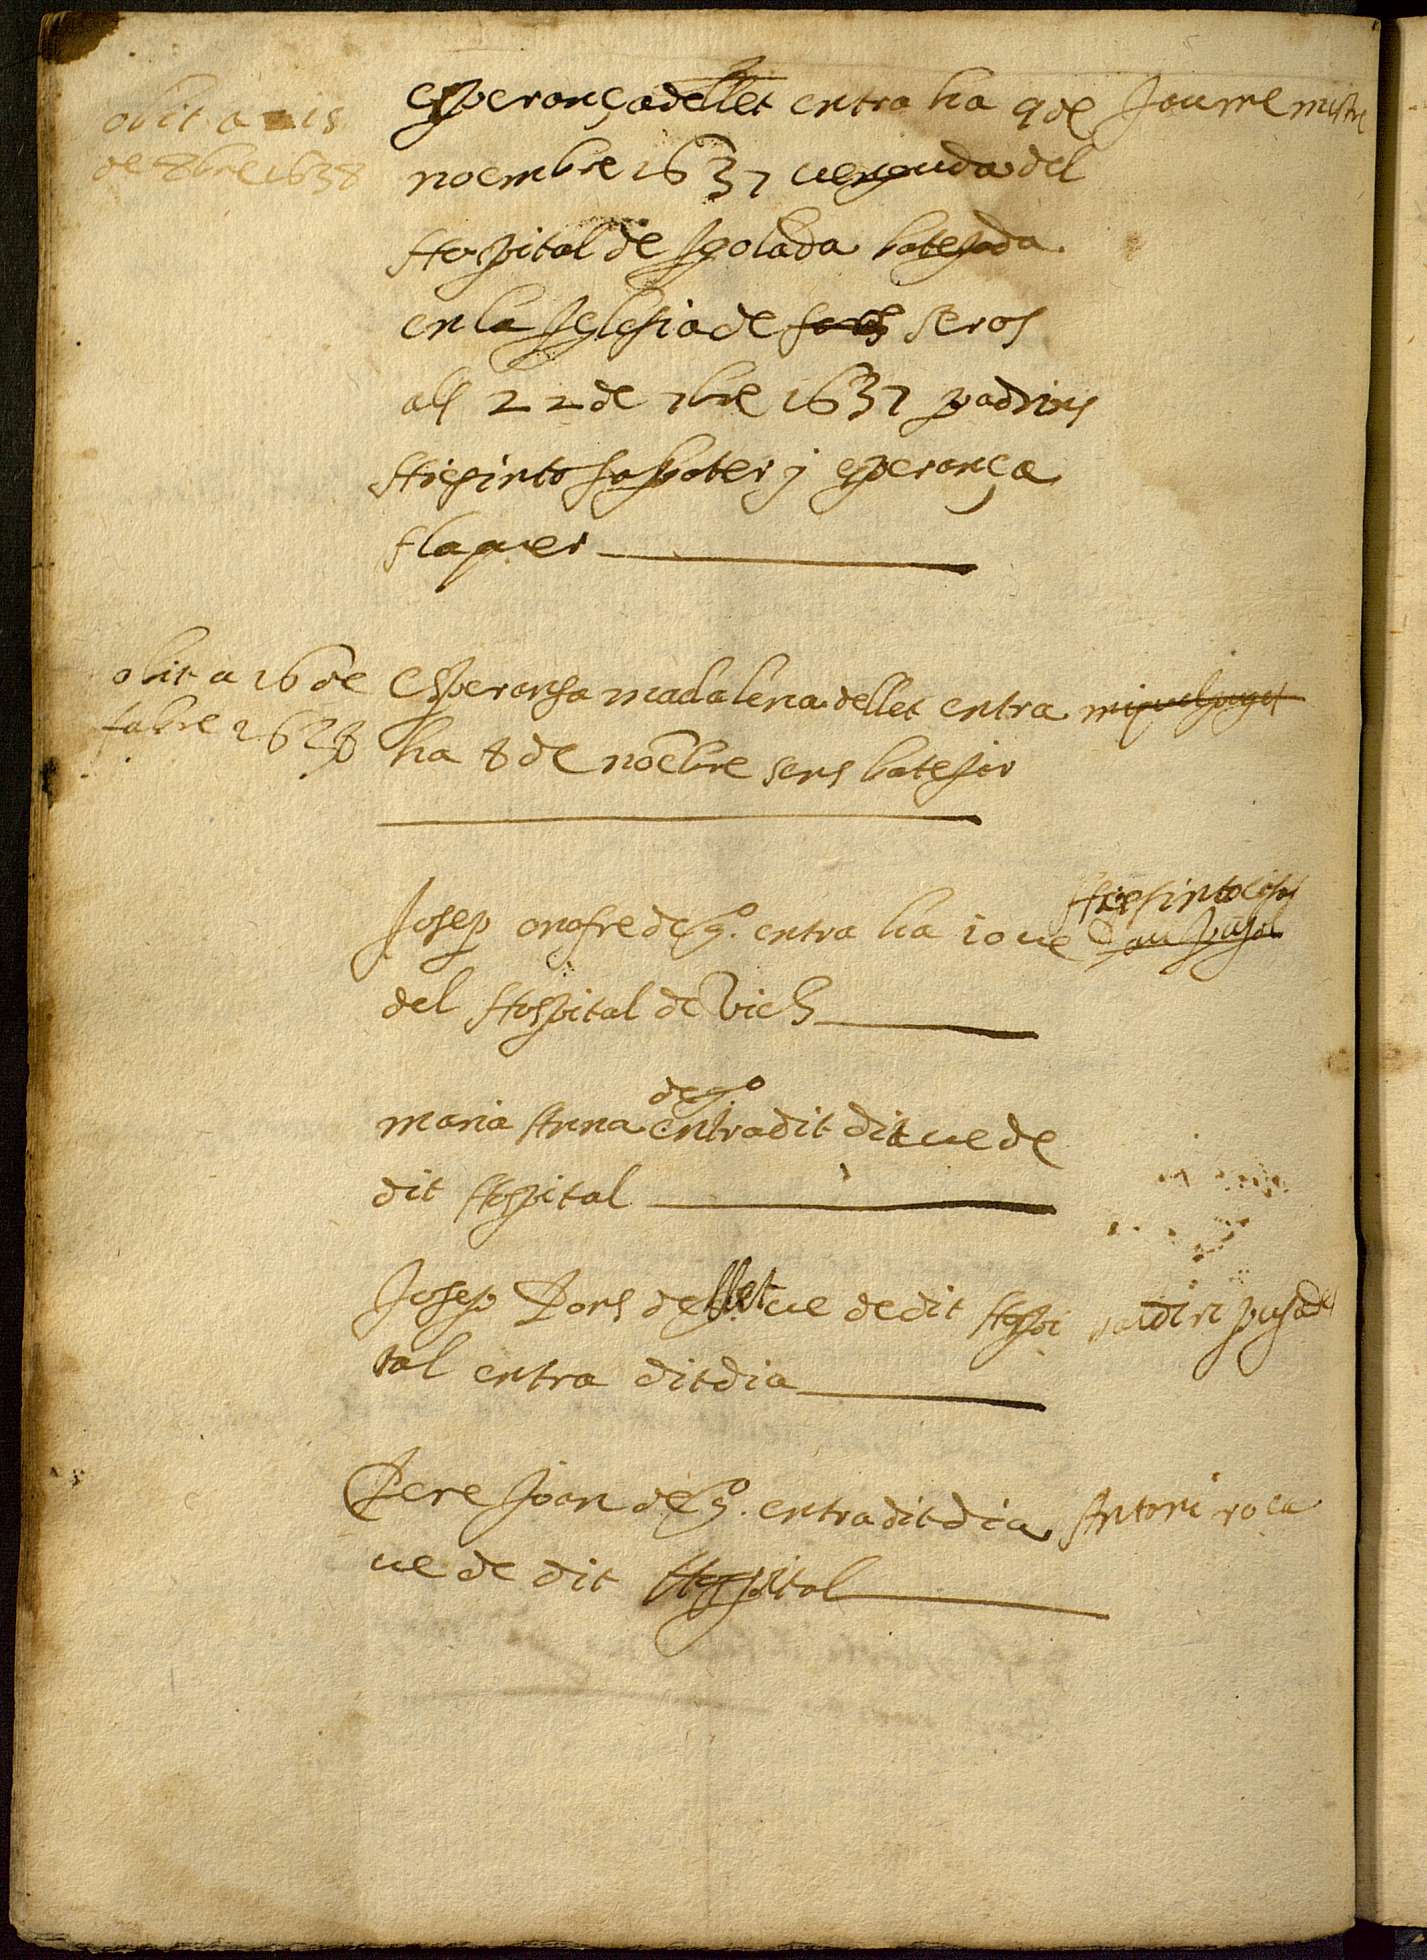 obit a 15
de 8bre 1638
esperança de llet entra ha 9 de
Jaume mestre
noembre 1637 venguda del
Hospital de Igolada batejada
en la Iglesia de seros
als 22 de 7bre 1637 padrins
Hiesinto sabater y esperança
flaquer
obit a 16 de
Esperansa madalena de llet entra
miquel puget
ha 8 de noēbre sens batejar
Hiesinto
Josep onofre de go. entra ha 10 ve
Pau Pujol
del Hospital de Vich
de go
maria Anna entra dit dit ve de
dit Hospital
Josep Pons de llet ve de dit Hospi
tal entra dit dia
Pere Joan de go. entra dit dia
Antoni roca
ve de dit Hospital